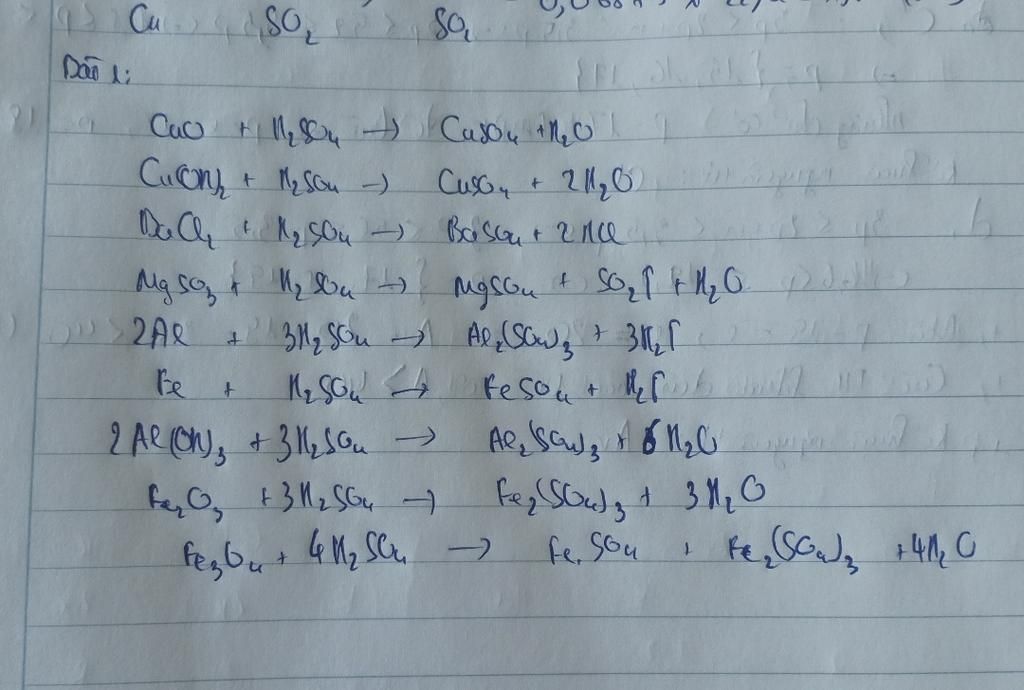 Cu SO₂ SO₂
Bài 1:
CuO + H₂SO₄ → CuSO₄ + H₂O
Cu(OH)₂ + H₂SO₄ → CuSO₄ + 2H₂O
BaCl₂ + H₂SO₄ → BaSO₄ + 2HCl
MgSO₃ + H₂SO₄ → MgSO₄ + SO₂↑ + H₂O
2Al + 3H₂SO₄ → Al₂(SO₄)₃ + 3H₂↑
Fe + H₂SO₄ → FeSO₄ + H₂↑
2Al(OH)₃ + 3H₂SO₄ → Al₂(SO₄)₃ + 6H₂O
Fe₂O₃ + 3H₂SO₄ → Fe₂(SO₄)₃ + 3H₂O
Fe₃O₄ + 4H₂SO₄ → FeSO₄ + Fe₂(SO₄)₃ + 4H₂O